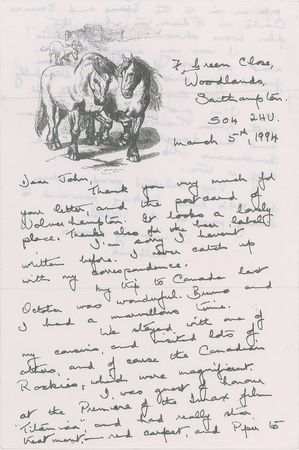 7, Green Close,
Woodlands,
Southampton.
SO4 2HU.
March 5th, 1994
Dear John,
Thank you very much for
your letter and the postcard of
Wolverhampton. It looks a lovely
place. Thanks also for the beer labels
I'm sorry I havent
written before. I never catch up
with my correspondence.
My trip to Canada last
October was wonderful. Bruno and
I had a marvellous time.
We stayed with one of
my cousins, and visited lots of
others, and of course the Canadian
Rockies, which were magnificent.
I was guest of honour
at the Premiere of the Imax film
Titanica, and had really star
treatment - red carpet, and Piper to